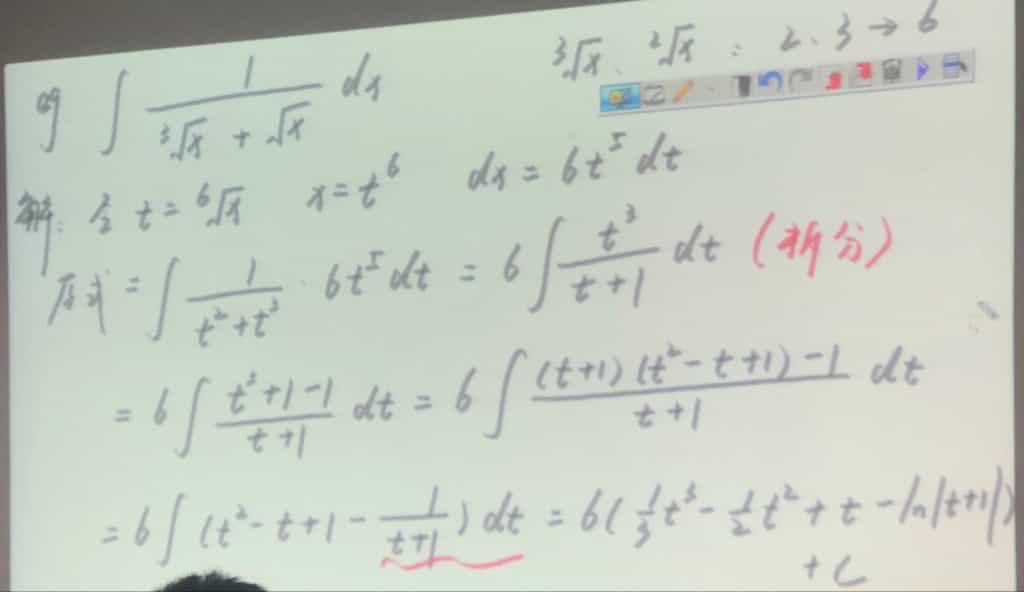 eg ∫ 1/(³√x + √x) dx
³√x . ²√x : 2 · 3 → 6
解: 令 t = ⁶√x x = t⁶ dx = 6t⁵ dt
原式 = ∫ 1/(t² + t³) · 6t⁵ dt = 6 ∫ t³/(t+1) dt (拆分)
= 6 ∫ (t³+1-1)/(t+1) dt = 6 ∫ ((t+1)(t²-t+1)-1)/(t+1) dt
= 6 ∫ (t²-t+1- 1/(t+1)) dt = 6(1/3 t³ - 1/2 t² + t - ln|t+1|)
+ C